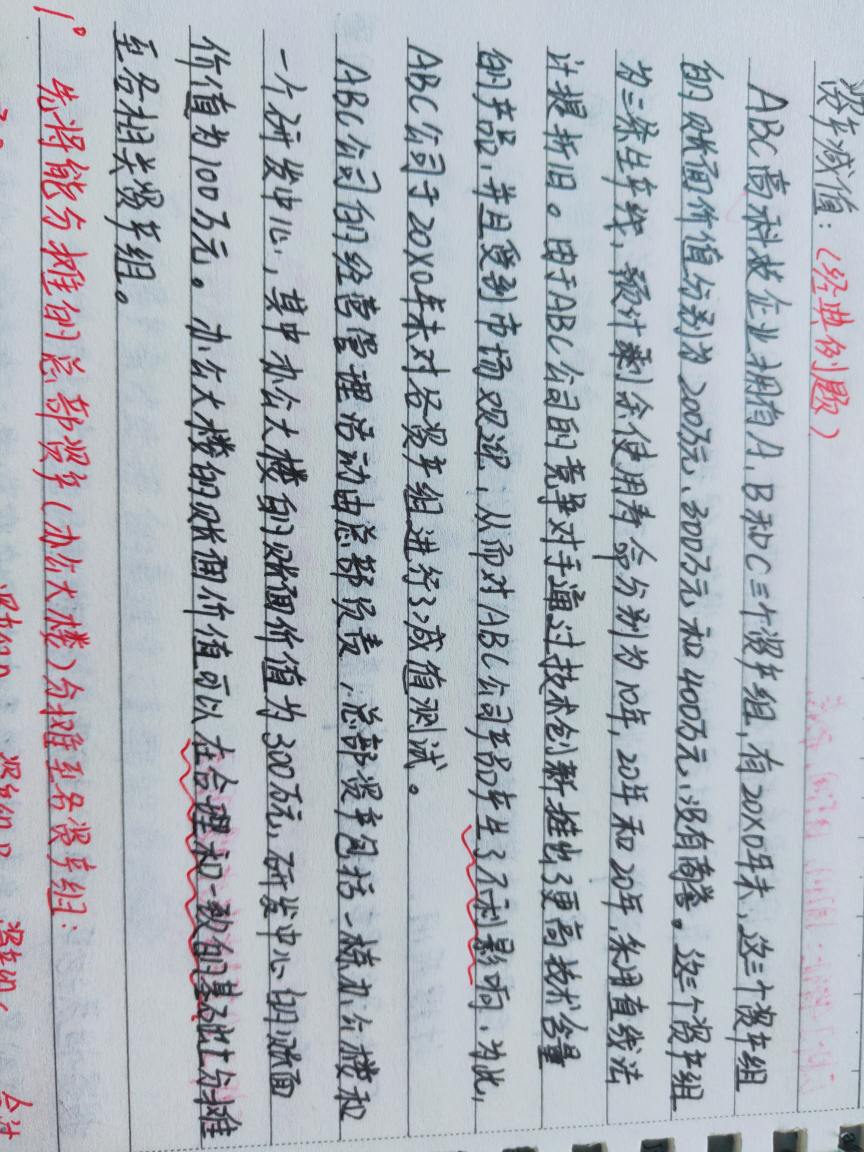 资产减值：（经典例题）
ABC高科技企业拥有A、B和C三个资产组，有20X0年末，这三个资产组
的账面价值分别为200万元、300万元和400万元，没有商誉。这三个资产组
为三条生产线，预计剩余使用寿命分别为10年，20年和20年，采用直线法
计提折旧。由于ABC公司的竞争对手通过技术创新推出了更高技术含量
的产品，并且受到市场欢迎，从而对ABC公司产品产生了不利影响，为此，
ABC公司于20X0年末对各资产组进行了减值测试。
ABC公司的经营管理活动由总部负责，总部资产包括一栋办公楼和
一个研发中心，其中办公大楼的账面价值为300万元，研发中心的账面
价值为100万元。办公大楼的账面价值可以在合理和一致的基础上分摊
至各相关资产组。
1° 先将能分摊的总部资产（办公大楼）分摊至各资产组：
资产组B
合计